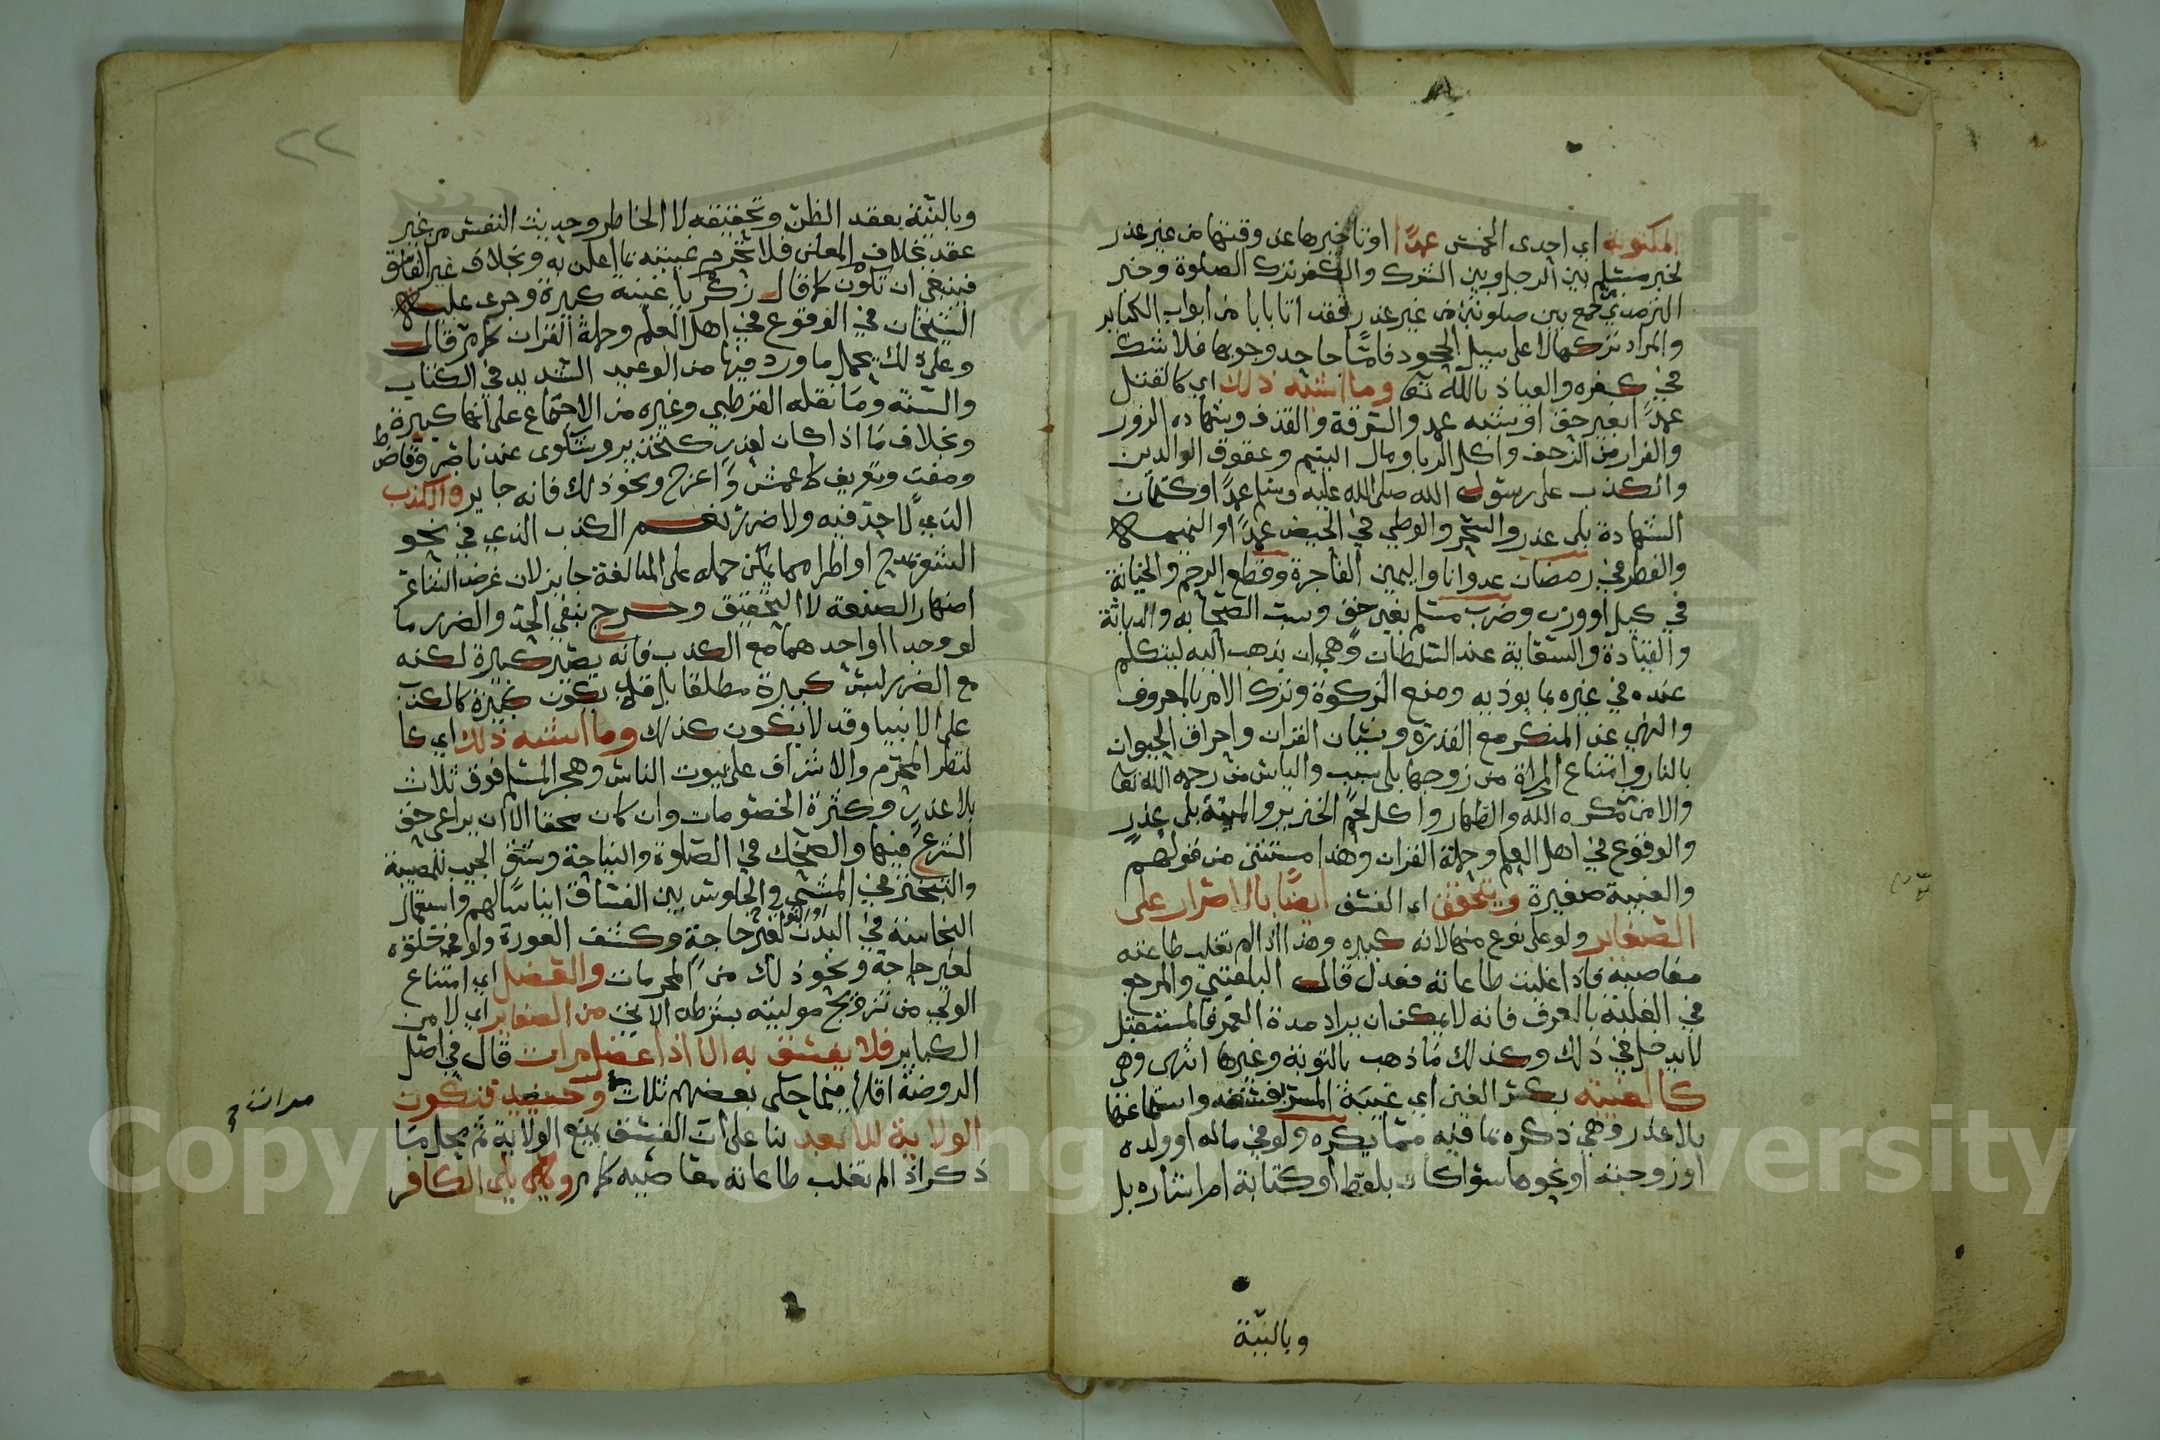 المكتوبة اي احدى الخمس عمدًا او تاخيرها عن وقتها من غير عذر
لخبر مسلم بين الرجل وبين الشرك والكفر ترك الصلوة وخبر
الترمذي جمع بين صلوتين من غير عذر فقد اتا بابا من ابواب الكباير
والمراد تركها لا على سبيل الجحود فامّا جاحد وجوبها فلا شك
في كفره والعياذ بالله تعا وما اشبه ذلك اي كالقتل
عمدًا بغير حق او شبه عمد والسرقة والقذف وشهادة الزور
والفرار من الزحف واكل الربا ومال اليتيم وعقوق الوالدين
والكذب على رسول الله صلى الله عليه وسلم عمدًا وكتمان
الشهادة بلى عذر والسحر والوطي في الحيض عمدًا والنميمة
والفطر في رمضان عدوانا واليمين الفاجرة وقطع الرحم والخيانة
في كيل او وزن وضرب مسلم بغير حق وسب الصحابه والدياثة
والقيادة والسعاية عند السلطان وهي ان يذهب اليه ليتكلم
عنده في غيره بما يوذيه ومنع الزكوة وترك الامر بالمعروف
والنهي عن المنكر مع القدرة ونسيان القران واحراق الحيوان
بالنار وامتناع المراة من زوجها بلى سبب والياس من رحمه الله تعا
والامن مكره الله والظهار واكل لحم الخنزير والميتة بلى عذرٍ
والوقوع في اهل العلم وحملة القران وهذا مستثنى من قولهم
والغيبة صغيرة ويتحقق اي الفسق ايضًا بالاصرار على
الصغاير ولو على نوع منها لانه كبيره وهذا اذا لم تغلب طاعته
معاصيه فاذا غلبت طاعاته فعدل قال البلقيني والمرجع
في الغلبة بالعرف فانه لا يمكن ان يراد مدة العمر فالمستقبل
لا يدخل في ذلك وكذلك ما ذهب بالتوبة وغيرها انتهى وهي
كالغيبة بكسر الغين اي غيبة المسر فسقه واستماعها
بلا عذر وهي ذكره بما فيه مما يكره ولو في ماله او ولده
او زوجته او نحوها سوا كان بلفظ او كتابة ام اشاره بل
وبالنية
وبالنية بعقد الظن وتحقيقه لا الخاطر وحديث النفس من غير
عقد بخلاف المعلن فلا تحرم غيبته بما اعلن به وبخلاف غير الفاسق
فينبغي ان تكون كما قال زكريا غيبه كبيرة وجرى عليه
الشيخان في الوقوع في اهل العلم وحملة القران كما مر قال
وعلى ذلك يحمل ما ورد فيها من الوعيد الشديد في الكتاب
والسنة وما نقله القرطبي وغيره من الاجماع على انها كبيرة
وبخلاف ما اذا كان لعذر كتحذير وشكوى عند ناصر وقاض
ومفت وتعريف كاعمش واعرج ونحو ذلك فانه جاير والكذب
الذي لا حد فيه ولا ضرر نعم الكذب الذي في نحو
الشعر بمدح او اطرا مما يمكن حمله على المبالغة جايز لان غرض الشاعر
اضهار الصنعة لا التحقيق وخرج بنفي الحد والضرر ما
لو وجدا او احدهما مع الكذب فانه يصير كبيرة لكنه
مع الضرر ليس كبيرة مطلقا بل قد يكون كبيرة كالكذب
على الانبيا وقد لا يكون كذلك وما اشبه ذلك اي كا
لنظر المحرم والاشراف على بيوت الناس وهجر المسلم فوق ثلاث
بلا عذر وكثرة الخصومات وان كان محقا الا ان يراعى حق
الشرع فيها والضحك في الصلوة والنياحة وشق الجيب للمصيبة
والتبختر في المشي والجلوس بين الفساق ايناسًا لهم واستعمال
النجاسة في البدن او الثوب لغير حاجة وكشف العورة ولو في خلوه
لغير حاجة ونحو ذلك من المحرمات والفضل اي امتناع
الولي من تزويج موليته بشرطه الاتي من الصغاير اي لا من
الكباير فلا يفسق به الا اذا عضل مرات قال في اصل
الروضة اقلها فيما حكى بعضهم ثلاث وحينيذ فتكون
الولاية للابعد بنا على ان الفسق يمنع الولاية ثم محل ما
ذكر اذ الم تغلب طاعاته معاصيه كما مر ويلي الكافر